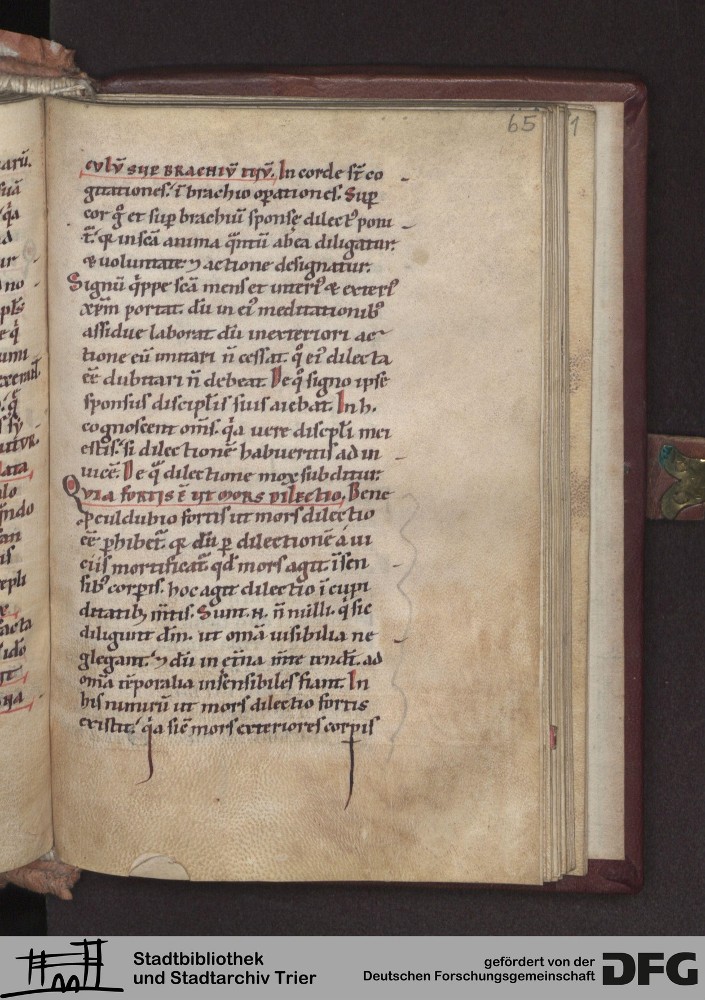 65
1
CVLV̄ SUP BRACHIV̄ TUV̄. In corde sr̄ co
gitationes. ī brachio oꝑationes. Suꝑ
cor gͦ et suꝑ brachiū sponsę dilectꝰ poni
t᷑. qꝛ in sc̄a anima q̄ntū ab ea diligatur.
& voluntate ⁊ actione designatur.
Signū q̇ppe sc̄a mens et interiꝰ & exteriꝰ
xp̄m portat. dū in eiꝰ meditationibꝰ
assidue laborat. dū in exteriori ac
tione eū imitari n̄ cessat. qͦ eiꝰ dilecta
eē dubitari n̄ debeat. De qͦ signo ipse
sponsus discipl̄is suis aiebat. In h.
cognoscent om̄s. q̇a vere discpl̄i mei
estis. si dilectionē habueritis ad in
uicē. De q̄ dilectione mox subditur.
QVIA FORTIS Ē UT MORS DILECTIO. Bene
ꝓculdubio fortis ut mors dilectio
eē ꝑhibet᷑. qꝛ dū ꝑ dilectionē a ui
ciis mortificat᷑ qđ mors agit ī sen
sibꝰ corꝑis. hoc agit dilectio ī cupi
ditatibꝫ m̄tis. Sunt .N. n̄ nulli. q̇ sic
diligunt dn̄m. ut om̄a uisibilia ne
glegant. ⁊ dū in et̄na m̄te tendt̄. ad
om̄a tēporalia insensibiles fiant. In
his nimirū ut mors dilectio fortis
existit. q̇a sic̄ mors exteriores corꝑis
Stadtbibliothek
und Stadtarchiv Trier
gefördert von der
Deutschen Forschungsgemeinschaft
DFG